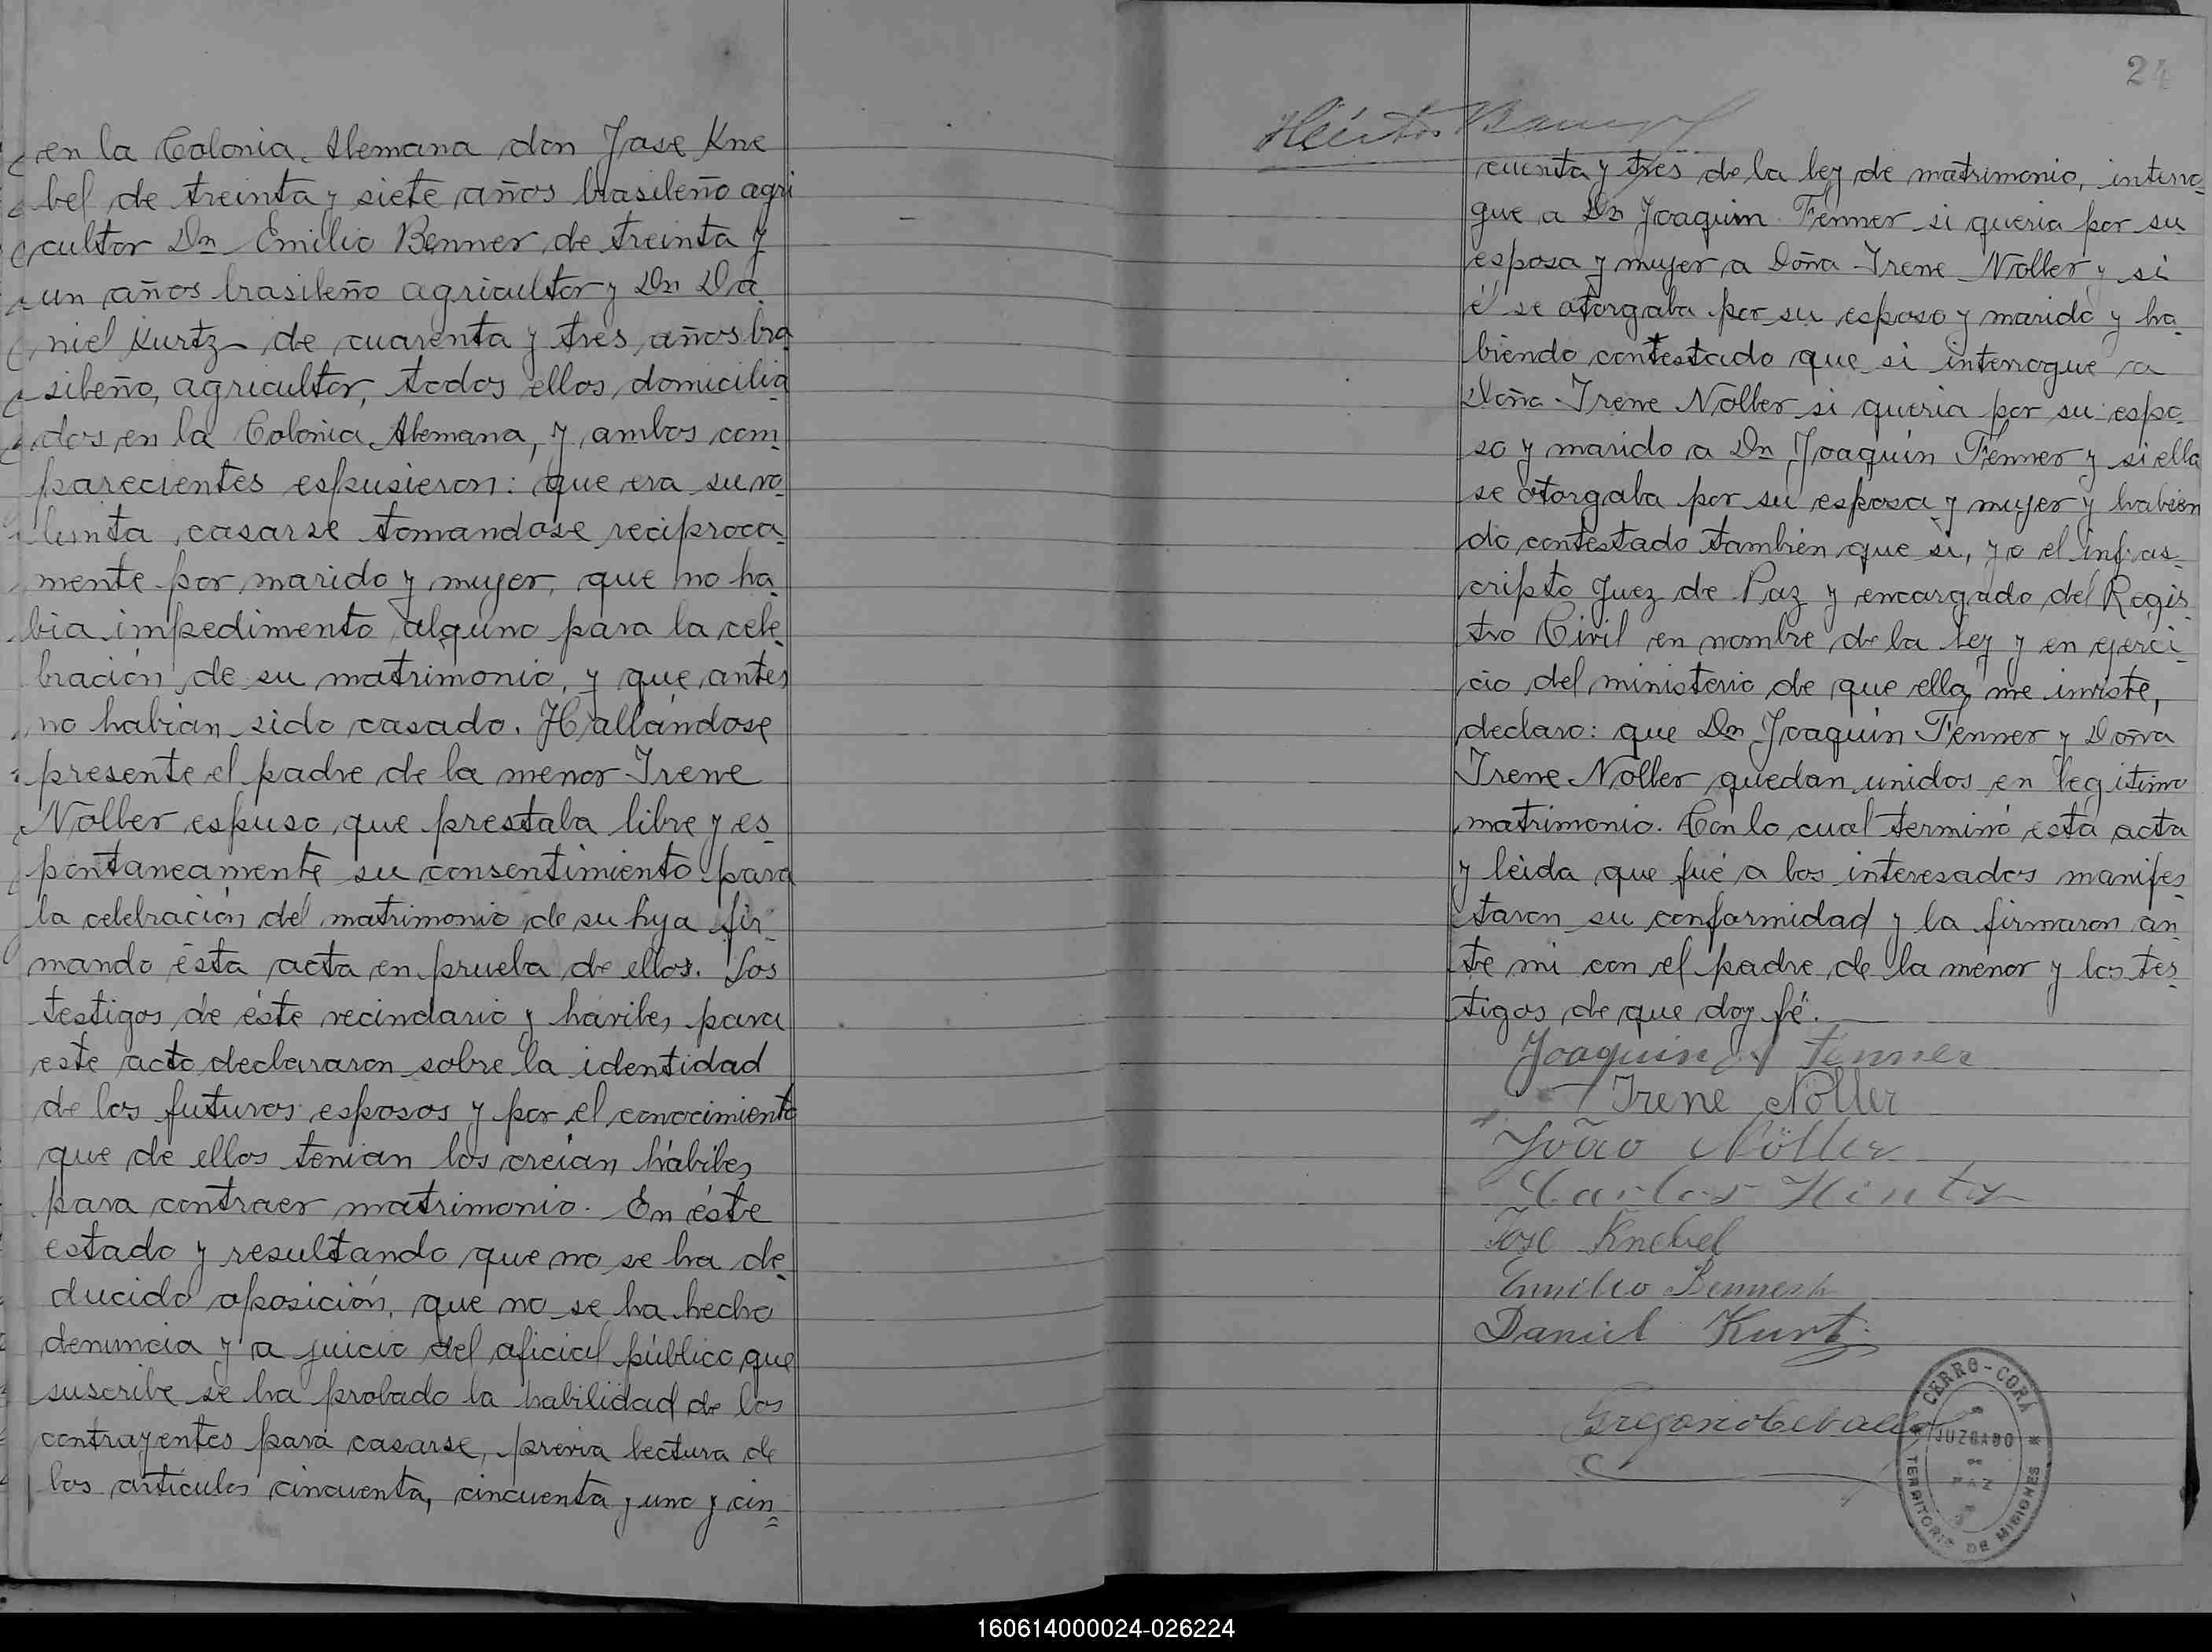 en la Colonia Alemana don Jose Kne
bel de treinta y siete años brasileño agri
cultor Dn Emilio Benner de treinta y
un años brasileño agricultor y Dn Da
niel Kurtz de cuarenta y tres años bra
sileño, agricultor, todos ellos domicilia
dos en la Colonia Alemana, y ambos com
parecientes espusieron: que era su vo
lunta casarse tomandose reciproca
mente por marido y mujer, que no ha
bia impedimento alguno para la cele
bración de su matrimonio, y que antes
no habian sido casado. Hallándose
presente el padre de la menor Irene
Noller espuso que prestaba libre y es
pontaneamente su consentimiento para
la celebración del matrimonio de su hija fir
mando ésta acta en prueba de ellos. Los
testigos de éste vecindario y háviles para
este acto declararon sobre la identidad
de los futuros esposos y por el conocimiento
que de ellos tenian los creían hábiles
para contraer matrimonio. En éste
estado y resultando que no se ha de
ducido oposición, que no se ha hecho
denuncia y a juicio del oficial público que
suscribe se ha probado la habilidad de los
contrayentes para casarse, previa lectura de
los artículos cincuenta, cincuenta y uno y cin=
24
Héctor
cuenta y tres de la ley de matrimonio, interro
gue a Dn Joaquin Fenner si queria por su
esposa y mujer a Doña Irene Noller y si
él se otorgaba por su esposo y marido y ha
biendo contestado que si interrogue a
Doña Irene Noller si queria por su espo
so y marido a Dn Joaquín Fenner y si ella
se otorgaba por su esposa y mujer y habien
do contestado también que si, yo el infras
cripto Juez de Paz y encargado del Regis
tro Civil en nombre de la ley y en ejerci
cio del ministerio de que ella me inviste,
declaro: que Dn Joaquín Fenner y Doña
Irene Noller quedan unidos en legitimo
matrimonio. Con lo cual terminó esta acta
y leida que fué a los interesados manifes
taron su conformidad y la firmaron an
te mi con el padre de la menor y los tes
tigos de que doy fé.
Joaquin Fenner
Irene Noller
João Nöller
Carlos Hintz
José Knebel
Emilio Benner
Daniel Kurtz
Gregorio Ceballo
CERRO-CORÁ
JUZGADO
DE
PAZ
TERRITORIO DE MISIONES
160614000024-026224